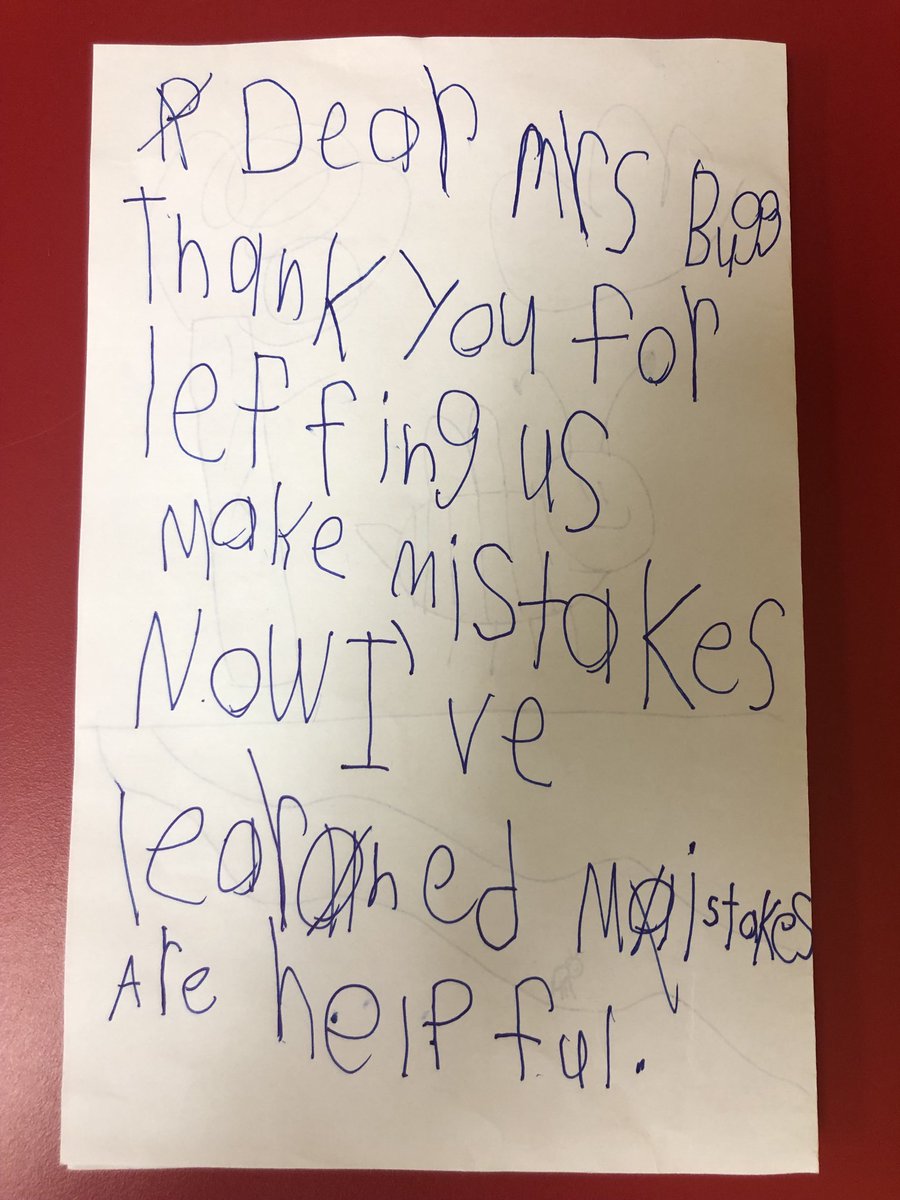 Dear Mrs Bugg
Thank you for
letting us
make mistakes
Now I've
learned Mistakes
Are helpful.